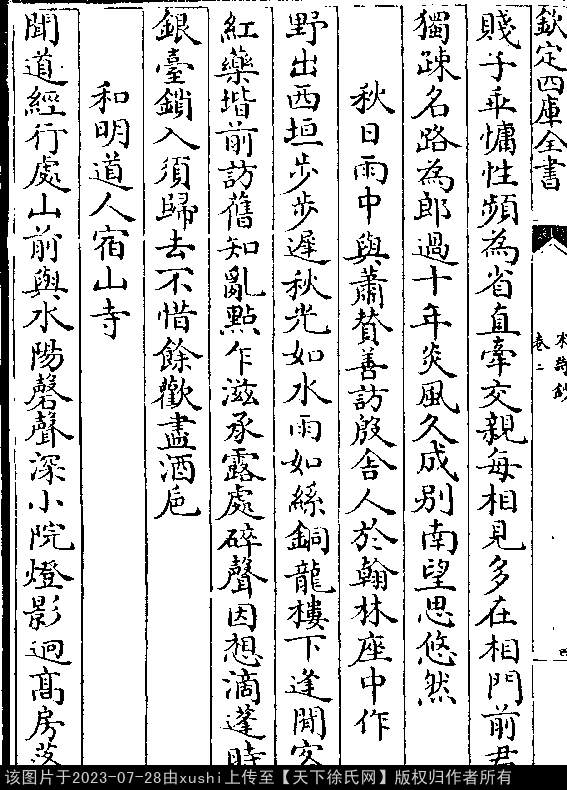 欽定四庫全書
宋詩鈔
卷二
賤子乖慵性頻為省直牽交親每相見多在相門前君
獨疎名路為郎過十年炎風久成別南望思悠然
秋日雨中與蕭贊善訪殷舍人於翰林座中作
野出西垣步步遲秋光如水雨如絲銅龍樓下逢閒客
紅藥堦前訪舊知亂點乍滋承露處碎聲因想滴蓬時
銀臺鎖入須歸去不惜餘歡盡酒巵
和明道人宿山寺
聞道經行處山前與水陽磬聲深小院燈影迥髙房落
该图片于2023-07-28由xushi上传至【天下徐氏网】版权归作者所有